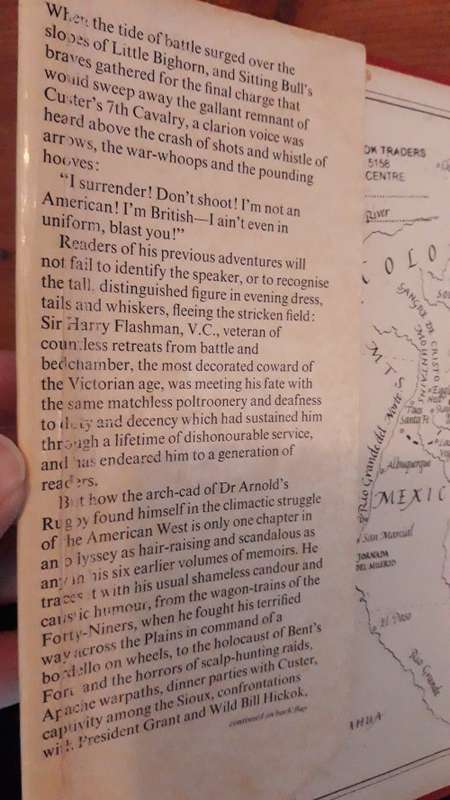 When the tide of battle surged over the
slopes of Little Bighorn, and Sitting Bull's
braves gathered for the final charge that
would sweep away the gallant remnant of
Custer's 7th Cavalry, a clarion voice was
heard above the crash of shots and whistle of
arrows, the war-whoops and the pounding
hooves:
"I surrender! Don't shoot! I'm not an
American! I'm British—I ain't even in
uniform, blast you!"
Readers of his previous adventures will
not fail to identify the speaker, or to recognise
the tall, distinguished figure in evening dress,
tails and whiskers, fleeing the stricken field:
Sir Harry Flashman, V.C., veteran of
countless retreats from battle and
bedchamber, the most decorated coward of
the Victorian age, was meeting his fate with
the same matchless poltroonery and deafness
to duty and decency which had sustained him
through a lifetime of dishonourable service,
and has endeared him to a generation of
readers.
But how the arch-cad of Dr Arnold's
Rugby found himself in the climactic struggle
of the American West is only one chapter in
an odyssey as hair-raising and scandalous as
any in his six earlier volumes of memoirs. He
traces it with his usual shameless candour and
caustic humour, from the wagon-trains of the
Forty-Niners, when he fought his terrified
way across the Plains in command of a
bordello on wheels, to the holocaust of Bent's
Fort and the horrors of scalp-hunting raids,
Apache warpaths, dinner parties with Custer,
captivity among the Sioux, confrontations
with President Grant and Wild Bill Hickok,
continued on back flap
OK TRADERS
5156
CENTRE
River
COLO
SANGRE DE CRISTO
MOUNTAINS
MTS
Taos
Santa Fe
Rio Grande del Norte
Albuquerque
MEXIC
San Marcial
JORNADA
DEL MUERTO
El Paso
Rio Grande
AHUA